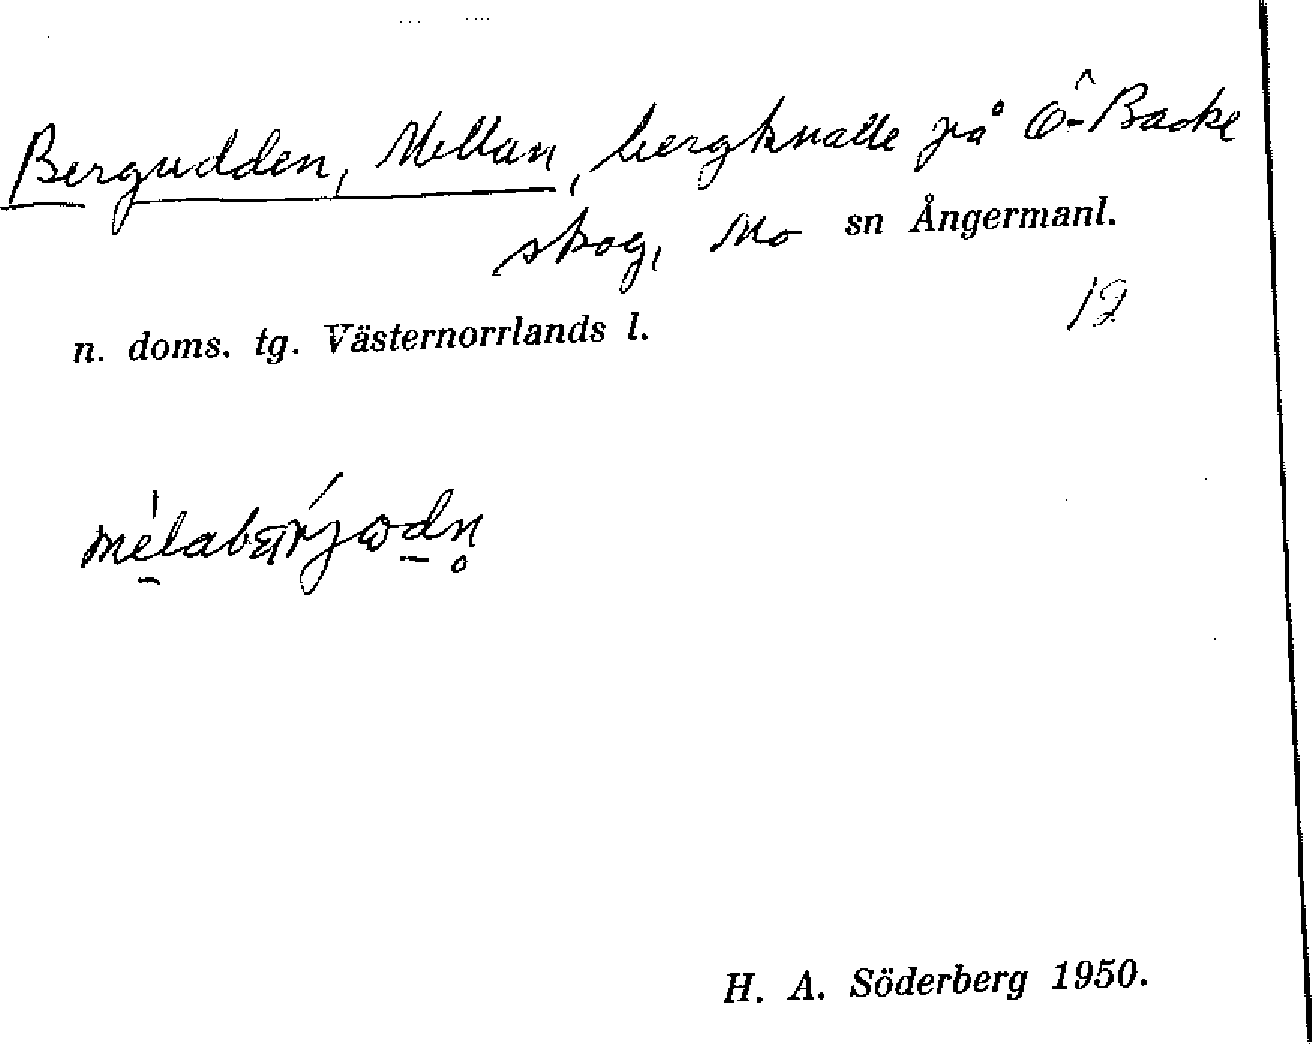 Bergudden, Mellan, bergknalle på Ö-Backe
skog, Mo sn Ångermanl.
12
n. doms. tg. Västernorrlands l.
H. A. Söderberg 1950.